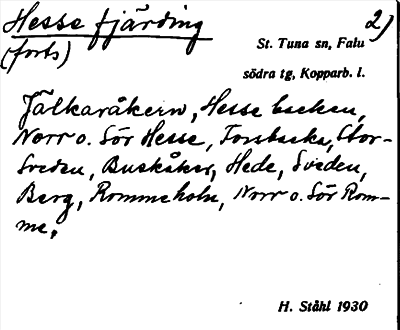 Hesse fjärding 2)
(forts)
St. Tuna sn, Falu
södra tg, Kopparb. l.
Jälkaråkern, Hesse backen,
Norr o. Sör Hesse, Forsbacka, Stor-
sveden, Buskåker, Hede, Sveden,
Berg, Rommeholn, Norr o. Sör Rom-
me.
H. Ståhl 1930